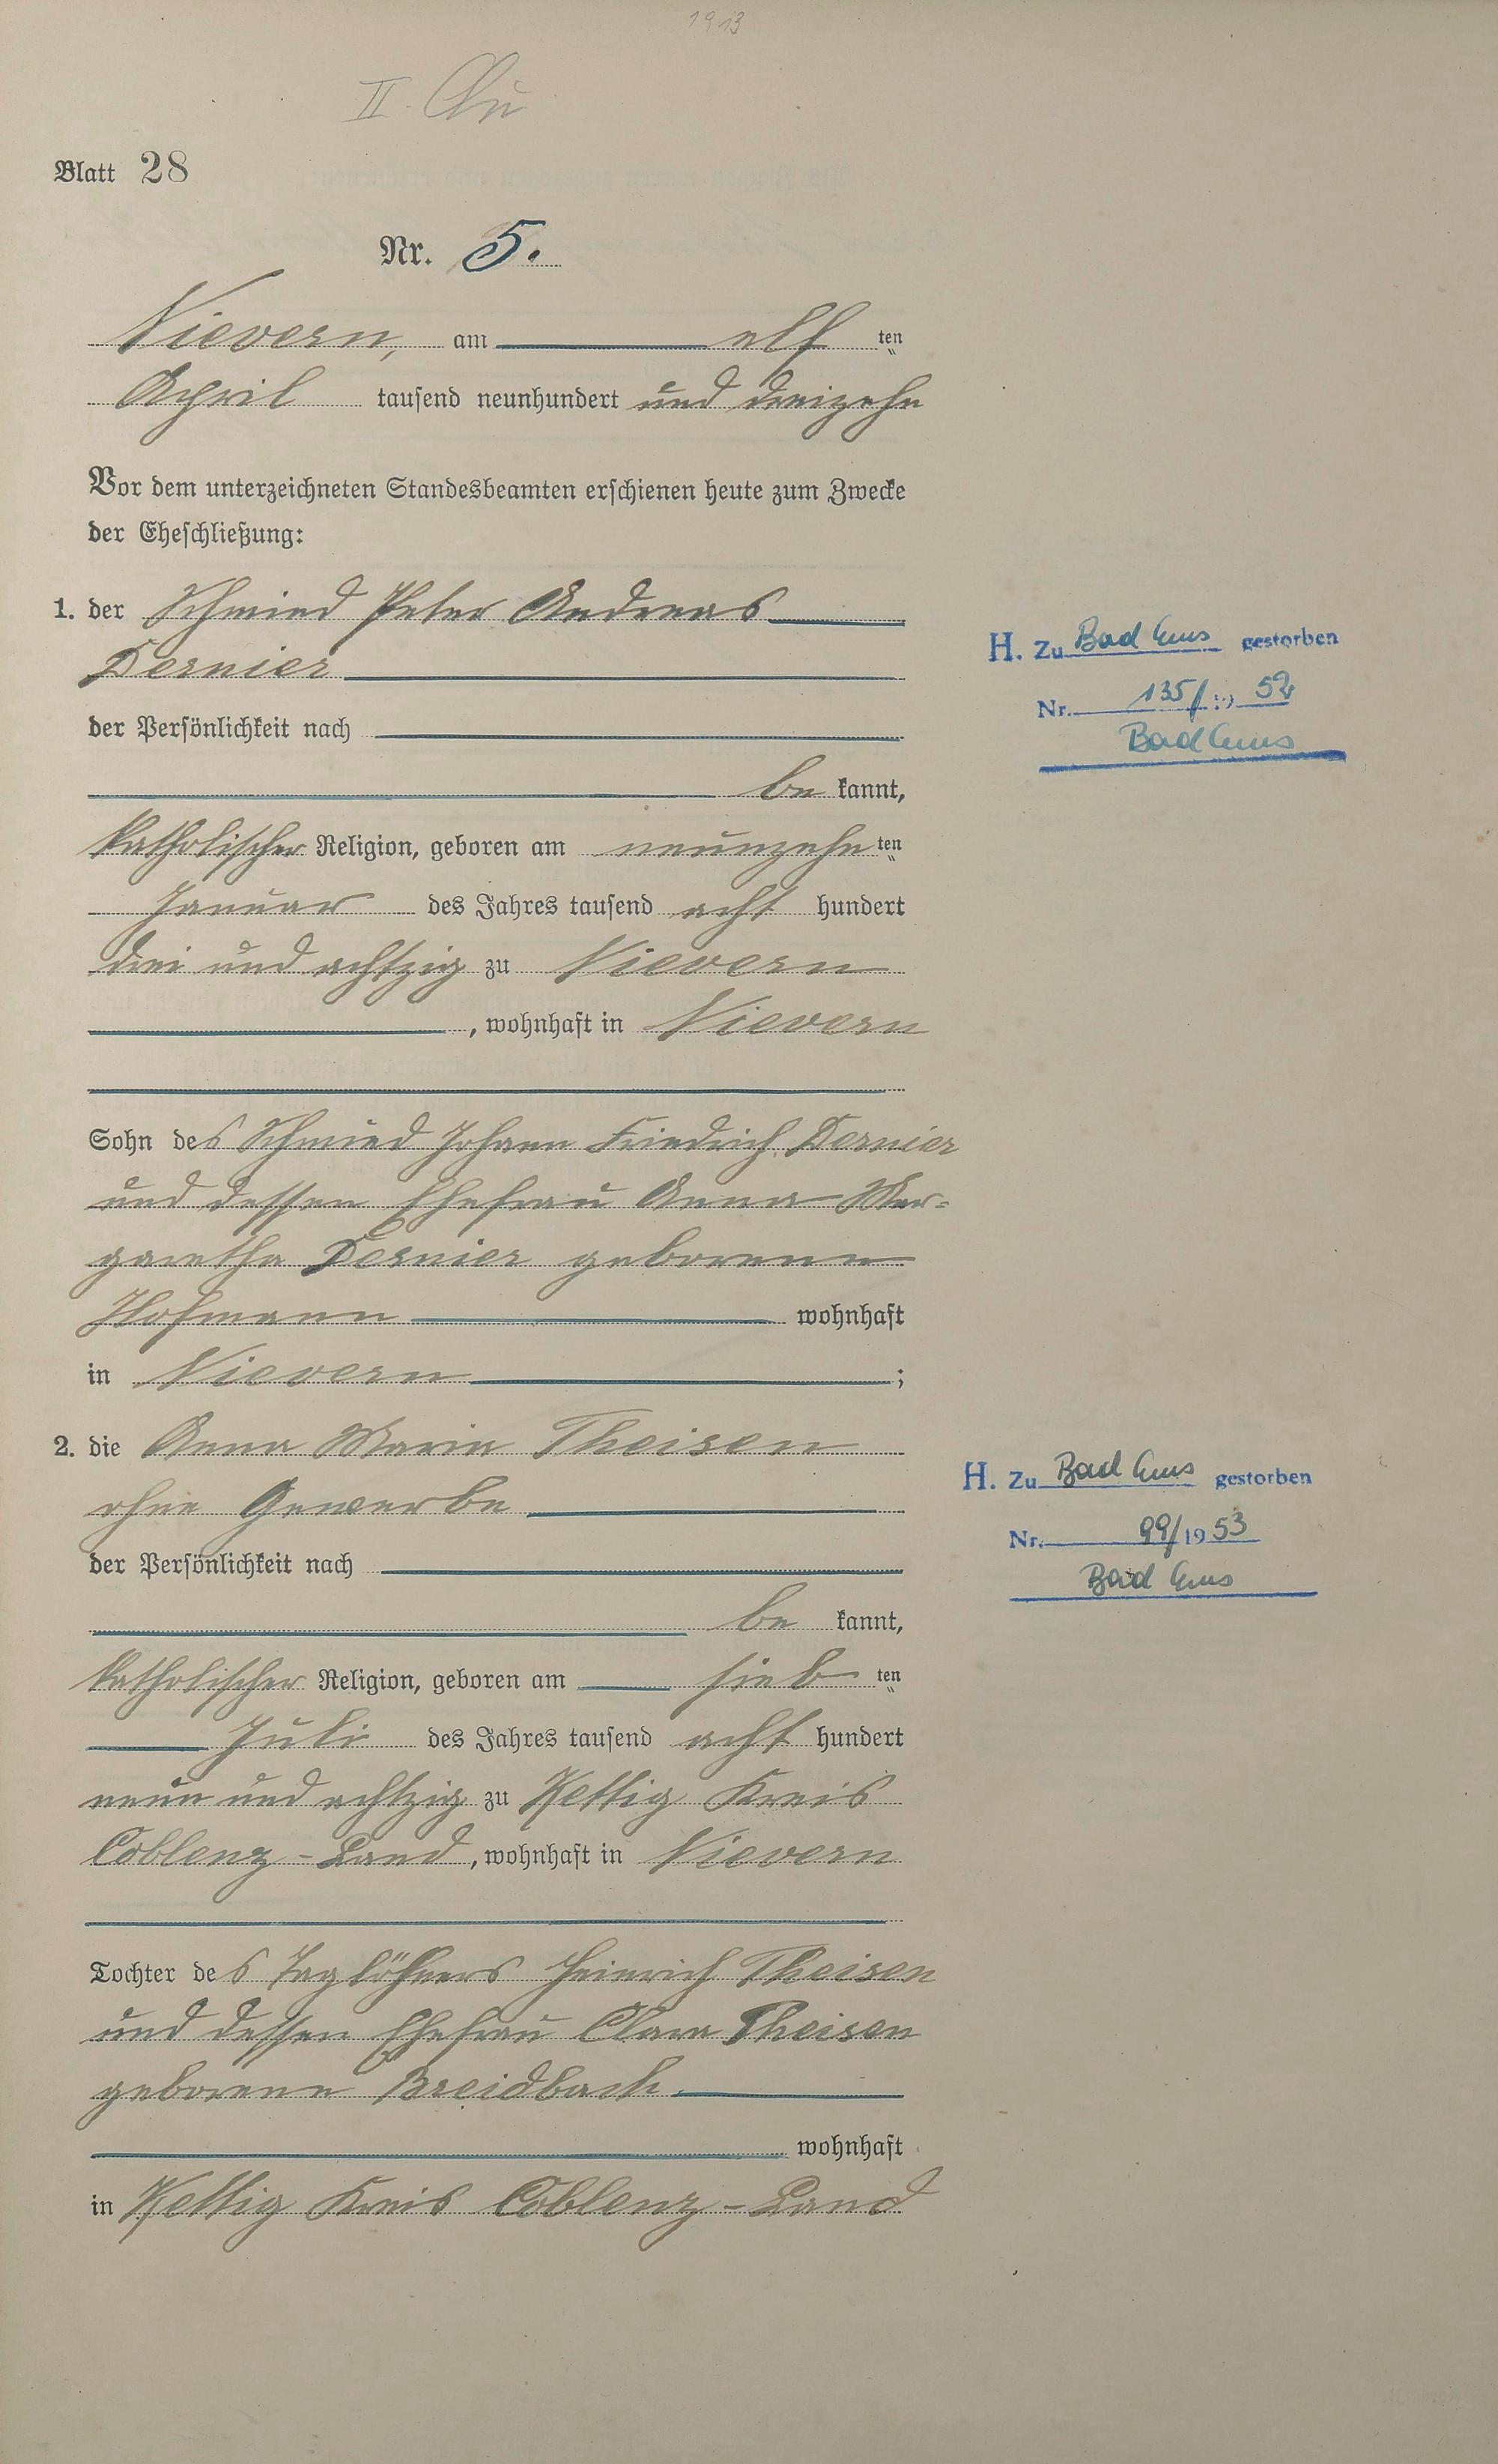 1913
II.
Blatt 28
Nr. 5.
Nievern, am elf ten
April tausend neunhundert und dreizehn
Vor dem unterzeichneten Standesbeamten erschienen heute zum Zwecke
der Eheschließung:
1. der Schmied Peter Andreas
Dernier
der Persönlichkeit nach
be kannt,
katholischer Religion, geboren am neunzehn ten
Januar des Jahres tausend acht hundert
drei und achtzig zu Nievern
, wohnhaft in Nievern
Sohn des Schmied Johann Friedrich Dernier
und dessen Ehefrau Anna Mar=
garetha Dernier geborene
Hofmann wohnhaft
in Nievern ;
H. Zu Bad Ems gestorben
Nr. 135/19 52
Bad Ems
2. die Anna Maria Theisen
ohne Gewerbe
der Persönlichkeit nach
be kannt,
katholischer Religion, geboren am sieb ten
Juli des Jahres tausend acht hundert
neun und achtzig zu Kettig Kreis
Coblenz-Land, wohnhaft in Nievern
Tochter des Taglöhners Heinrich Theisen
und dessen Ehefrau Clara Theisen
geborene Breidbach
wohnhaft
in Kettig Kreis Coblenz-Land
H. Zu Bad Ems gestorben
Nr. 99/19 53
Bad Ems